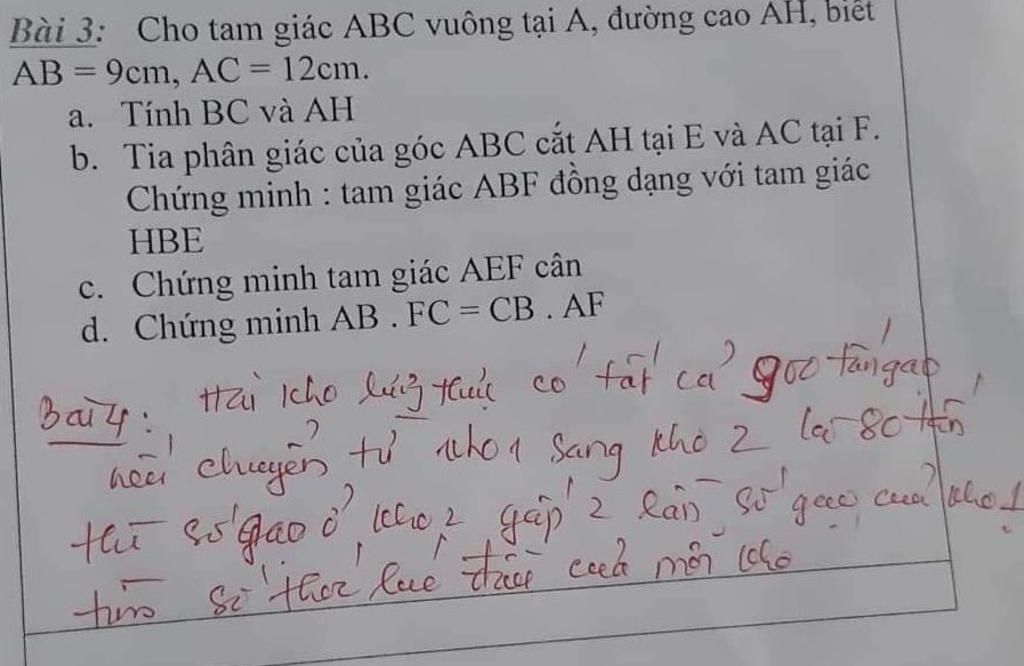 Bài 3: Cho tam giác ABC vuông tại A, đường cao AH, biết
AB = 9cm, AC = 12cm.
a. Tính BC và AH
b. Tia phân giác của góc ABC cắt AH tại E và AC tại F.
Chứng minh : tam giác ABF đồng dạng với tam giác
HBE
c. Chứng minh tam giác AEF cân
d. Chứng minh AB . FC = CB . AF
Bài 4: Hai kho lương thực có tất cả 900 tấn gạo
nếu chuyển từ kho 1 sang kho 2 là 80 tấn
thì số gạo ở kho 2 gấp 2 lần số gạo của kho 1
tìm số thóc lúc đầu của mỗi kho